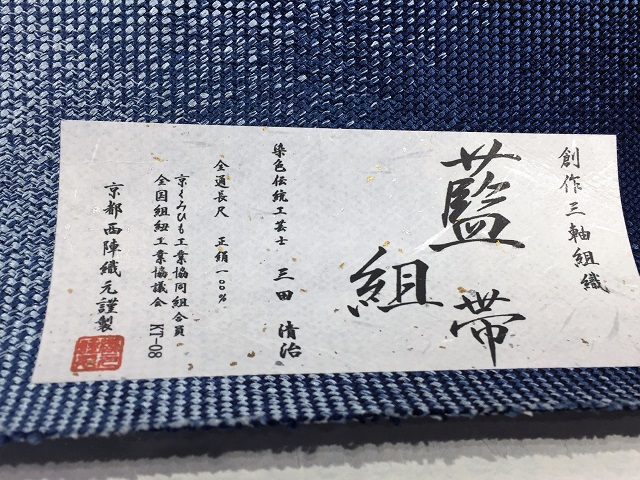 創作三軸組織
藍組帯
染色伝統工芸士　三田　清治
全通長尺　正絹一〇〇%
京くみひも工業協同組合員
全国組紐工業協議会　KT-08
京都西陣織元謹製